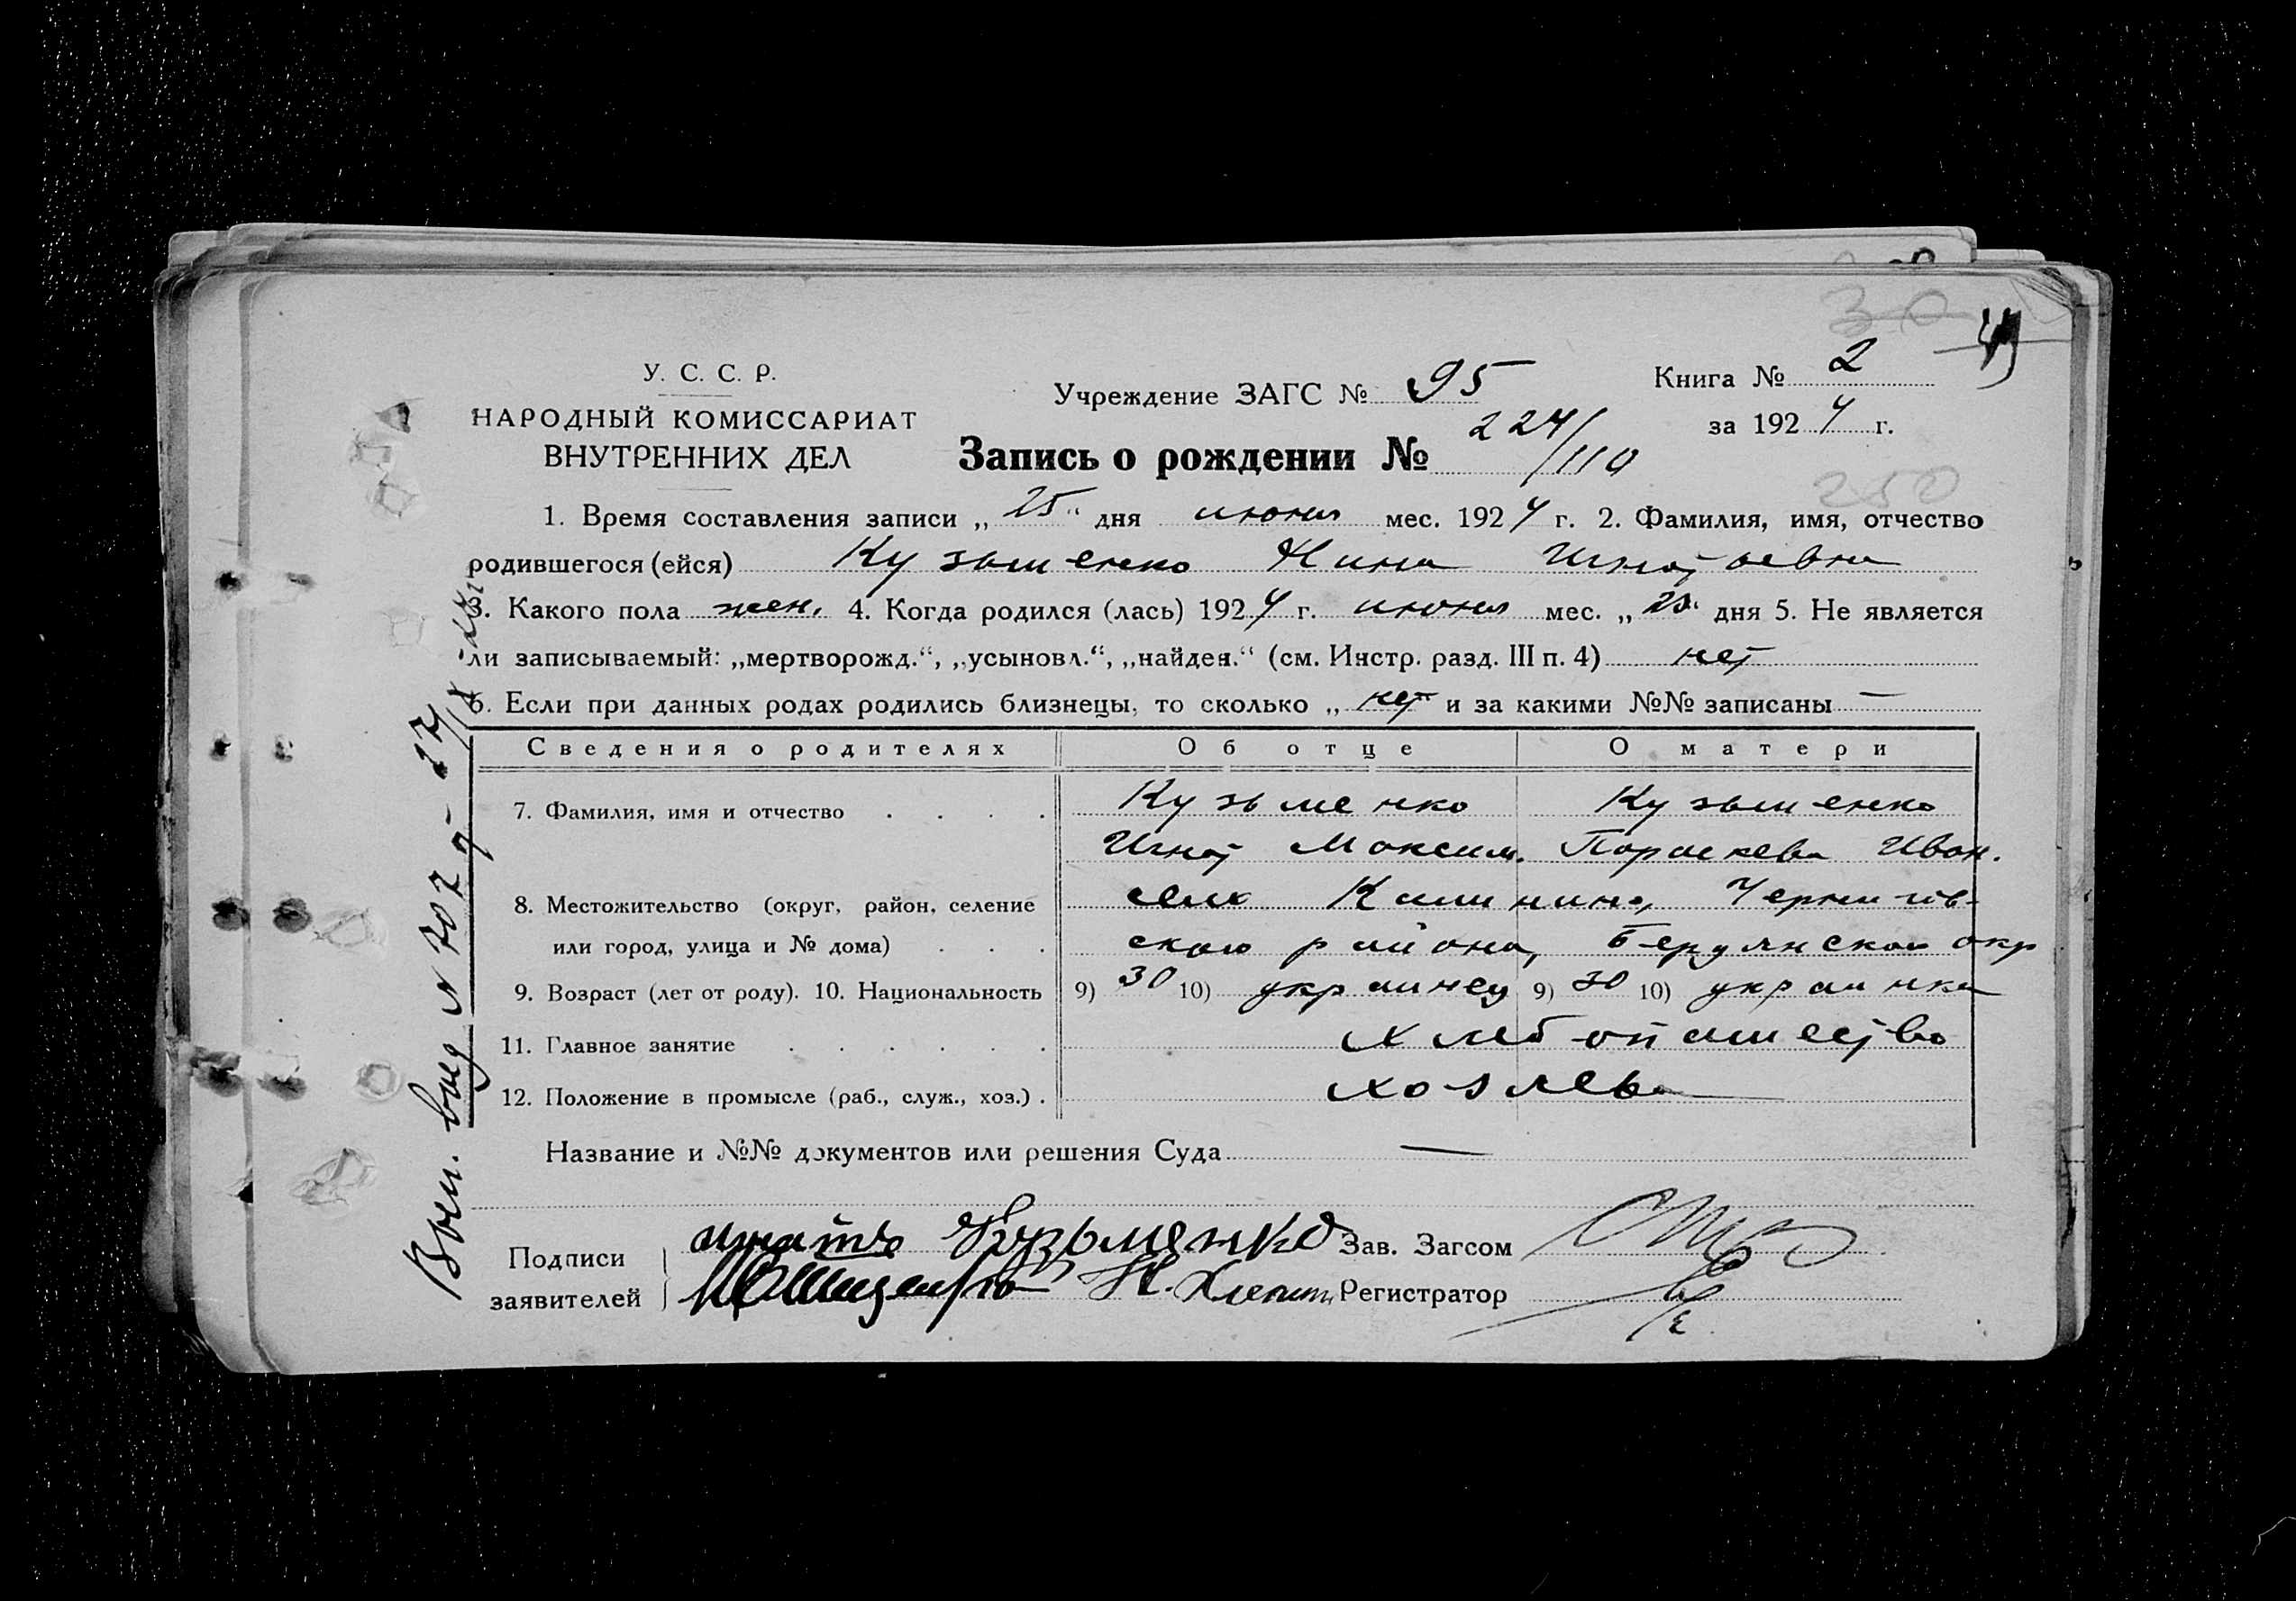 30
У. С. С. Р.
НАРОДНЫЙ КОМИССАРИАТ
ВНУТРЕННИХ ДЕЛ
Учреждение ЗАГС № 95
Книга № 2
за 1924 г.
Запись о рождении № 224/110
250
1. Время составления записи „25“ дня июня мес. 1924 г. 2. Фамилия, имя, отчество
родившегося (ейся) Кузьменко Нина Игнатьевна
3. Какого пола жен. 4. Когда родился (лась) 1924 г. июня мес. „ дня 5. Не является
ли записываемый: „мертворожд.“, „усыновл.“, „найден.“ (см. Инстр. разд. III п. 4) нет
6. Если при данных родах родились близнецы, то сколько „ нет и за какими №№ записаны —
Сведения о родителях Об отце О матери
7. Фамилия, имя и отчество . . . . Кузьменко Кузьменко
Игнат Максим. Параскева Иван.
8. Местожительство (округ, район, селение Калинино, Чернигов-
или город, улица и № дома) . . . ского района, Бердянской окр
9. Возраст (лет от роду). 10. Национальность 9) 30 10) украинец 9) 30 10) украинка
11. Главное занятие . . . . . . хлебопашество
12. Положение в промысле (раб., служ., хоз.) . хозяева
Название и №№ документов или решения Суда —
Подписи заявителей
игнатъ Кузьменко
Зав. Загсом
Регистратор